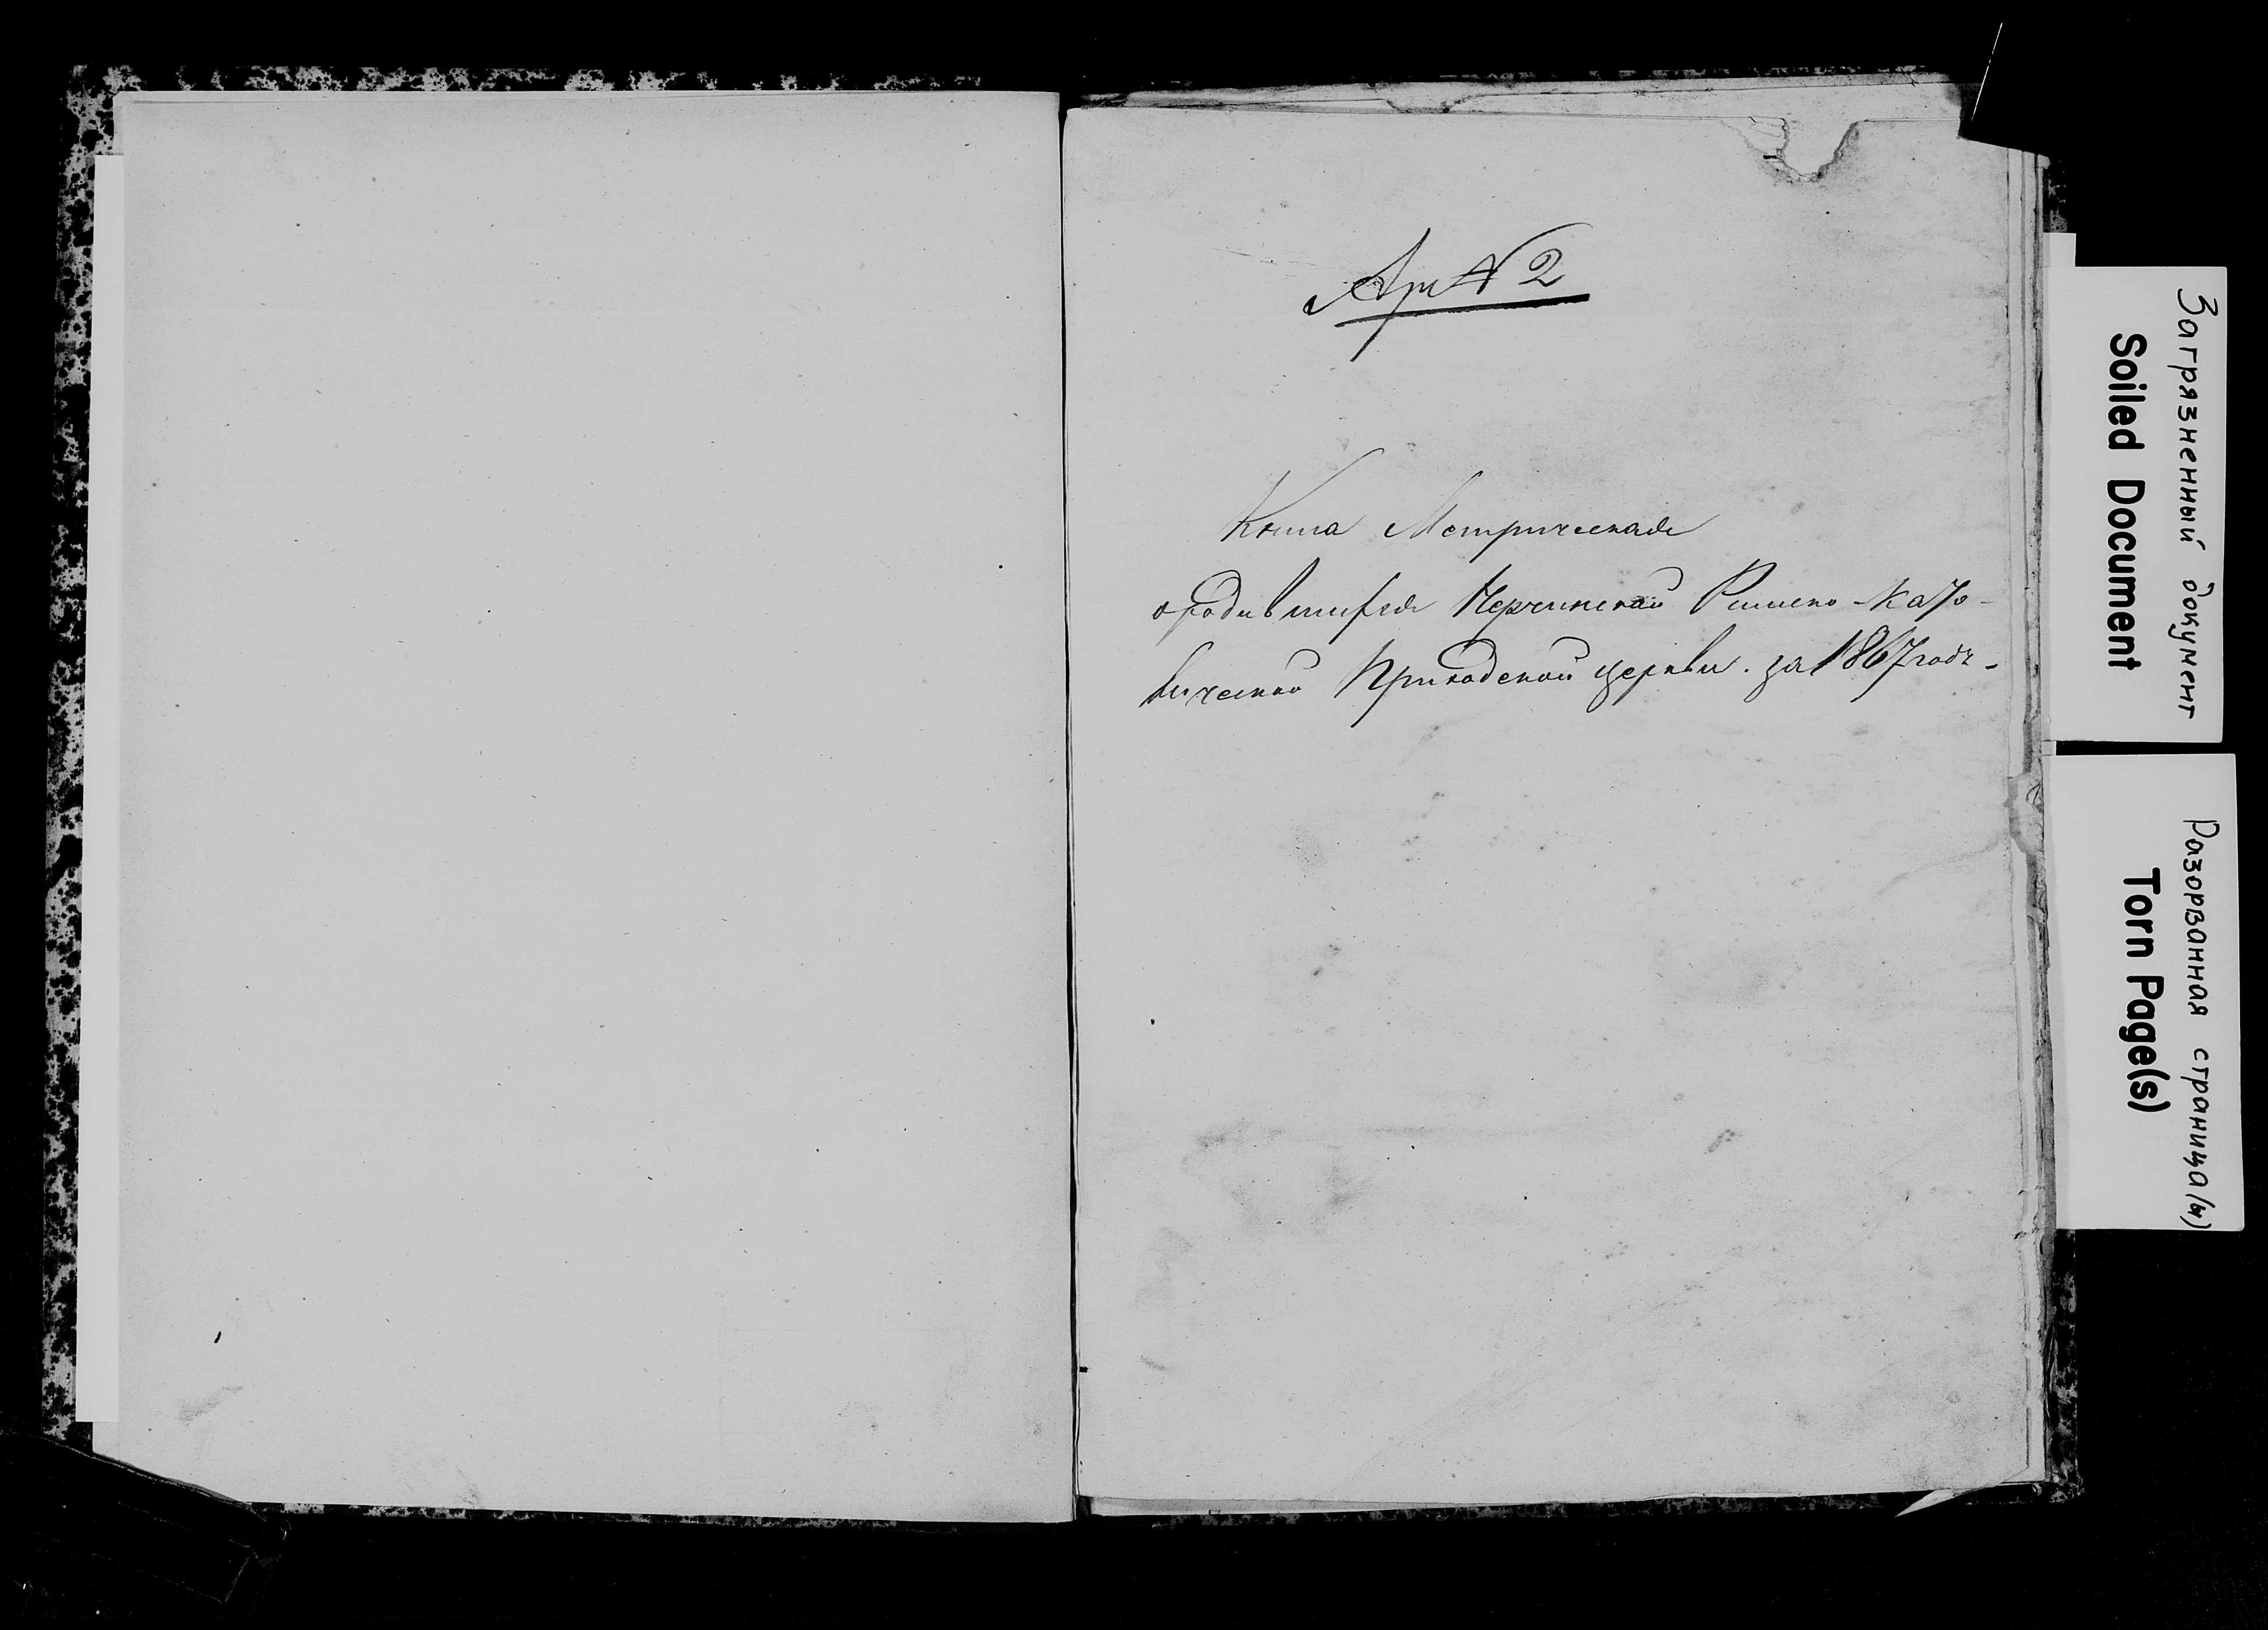 Арт № 2
Книга Метрическая
о родившихся Нерчинской Римско-като-
лической Приходской церкви. за 1867 годъ.
Загрязненный документ
Soiled Document
Разорванная страница(ы)
Torn Page(s)